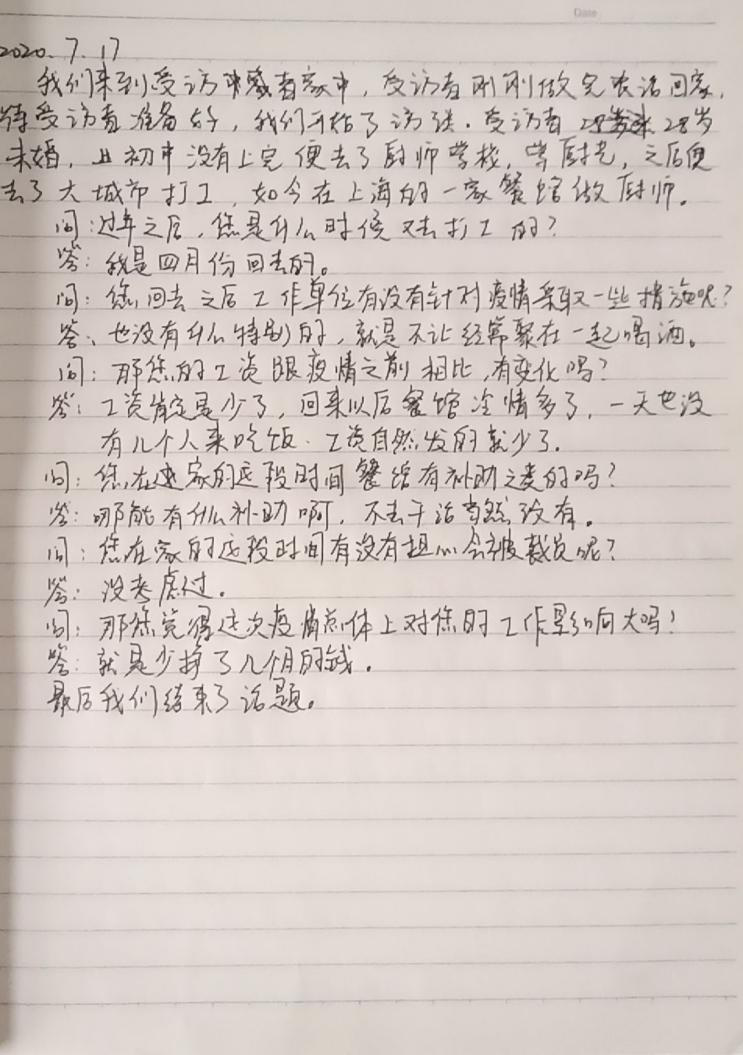 Date
2020.7.17
我们来到受访者家中，受访者刚刚做完农活回家，
待受访者准备好，我们开始了访谈．受访者 28岁
未婚，初中没有上完便去了厨师学校，学厨艺，之后便
去了大城市打工，如今在上海的一家餐馆做厨师。
问：过年之后，您是什么时候又去打工的？
答：我是四月份回去的。
问：您回去之后工作单位有没有针对疫情采取一些措施呢？
答：也没有什么特别的，就是不让经常聚在一起喝酒。
问：那您的工资跟疫情之前相比，有变化吗？
答：工资肯定是少了，回来以后餐馆冷情多了，一天也没
有几个人来吃饭．工资自然发的就少了．
问：您在家的这段时间餐馆有补助之类的吗？
答：哪能有什么补助啊，不去干活当然没有。
问：您在家的这段时间有没有担心会被裁员呢？
答：没考虑过．
问：那您觉得这次疫情总体上对您的工作影响大吗？
答：就是少挣了几个月的钱．
最后我们结束了话题。